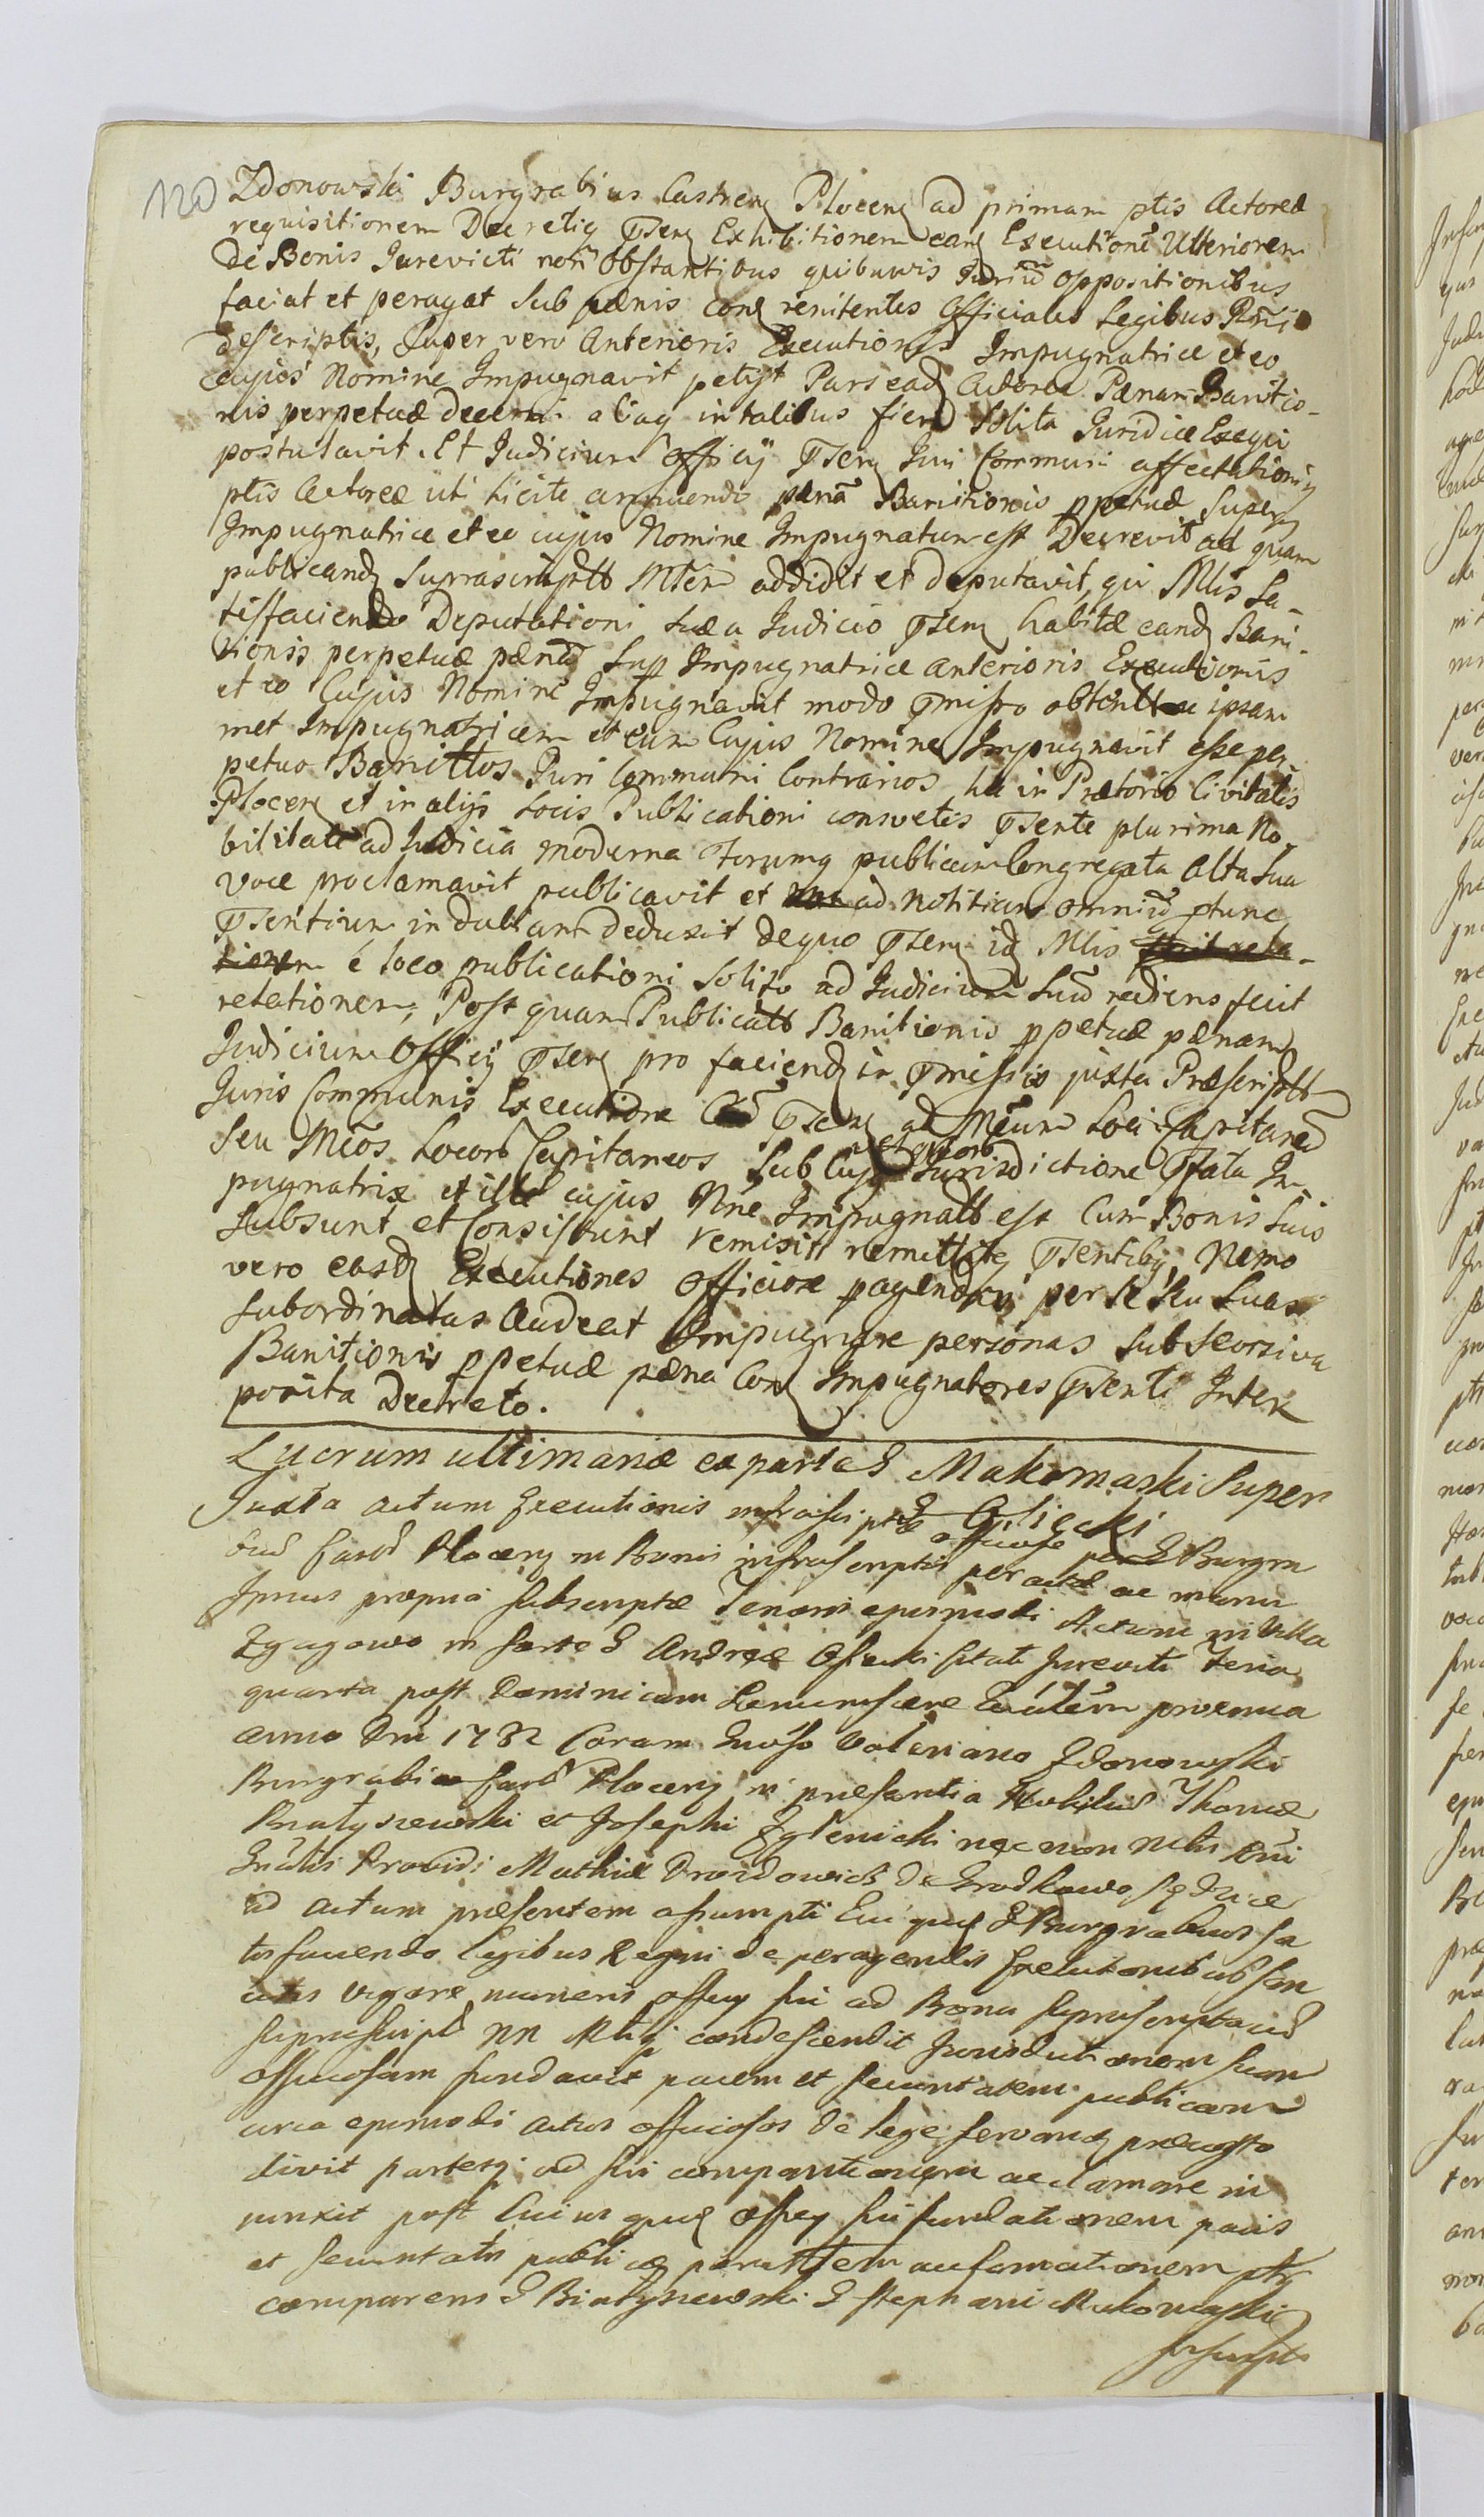 120
Zdonowski Burgrabius Castren Plocen ad primam ptis Actoreæ
requisitionem Decretiq Psen Exhibitionem ean Executionē Ulteriorem
de Bonis Jurevicti non obstantibus quibusvis Juriū oppositionibus
faciat et peragat sub pænis con renitentes Officiales Legibus Rni
descriptis, super vero Anterioris Executionis Impugnatrice et eo
cujus Nomine Impugnavit petijt Pars ead Actorea Pænam Banitio-
nis perpetuæ decerni aliaq in talibus fieri solita Juridice Exequi
postulavit. Et Judicium Officij Psen Juri Communi affectationiq
ptis Actoreæ uti licite annuendo pænā Banitionis ppetuæ super
Impugnatrice et eo cujus Nomine Impugnatum est Decrevit ad quam
publicand suprascriptt Mtēm addidit et deputavit, qui Mlis Sa-
tisfaciendo Deputationi suæ a Judicio Psen habitæ eand Bani-
tionis perpetuæ pænā sup Impugnatrice anterioris Executionis
et eo Cujus Nomine Impugnavit modo Pmisso obtent ipsam
met Impugnatricem et eum Cujus Nomine Impugnavit esse per-
petuo Banittos Juri Communi Contrarios, hic in Prætorio Civitatis
Plocen et in alijs Locis Publicationi consvetis Psente plurima No-
bilitate ad Judicia moderna Forumq publicum Congregata Alta sua
voce proclamavit publicavit et ad Notitiam omniū ptunc
Psentium indubiam deduxit dequo Psen id Mlis
é loco publicationi solito ad Judicium suū rediens fecit
relationem, Post quam Publicatt Banitionis ppetuæ pænam
Judicium Officij Psen pro faciend in Pmissis juxta Præscriptt
Juris Communis Executione Psen ad Mēum Loci Capitaneū
seu Mēos Locorū Capitaneos sub Cujus vel quorū Jurisdictione Pfata Im-
pugnatrix et ille cujus Nne Impugnatt est Cum Bonis suis
subsunt et Consistunt remisit remittitq Psentibq, Nemo
vero easd Executiones officiose pagendas per se seu suas
subordinatas Audeat Impugnare personas sub seorsiva
Banitionis ppetuæ pæna Con Impugnatores Psenti Inter
posita Decreto.
Lucrum ultimariæ ex parte G Makomaski Super
G Osiecki
Juxta actum Executionis infrascriptæ officiose per G Burgra
bium Castr Plocen in Bonis infrascriptis peractæ ac manu
Ipsius propria subscriptæ Tenoris ejusmodi Actum in Villa
Zgagowo in sorte G Andreæ Osiecki sitati Jurevicti Feria
quarta post Dominicam Reminiscere Quadēm proxima
anno Dni 1782 Coram Gnoso Valeriano Zdonowski
Burgrabio Castr Plocen in præsentia Nobilium Thomæ
Białyszewski et Josephi Zglenicki nec non Mtis Rni
Gnālis Providi Mathiæ Drozdowicz de Grodkowo
ad actum præsentem assumpti Qui quid G Burgrabius sa
tisfaciendo Legibus Regni de peragendis Executionibus san
citis vigore muneris officy sui ad Bona suprascripta cum
suprascript NN Mtiq condescendit Jurisdictionem suam
officiosam fundavit pacem et securitatem publicam
circa ejusmodi actus officiosos de lege servand præcusto
divit partesq ad sui comparitionem acclamare in
junxit post Cujus quid officy sui fundationem pacis
et securitatis publicæ parittem acclamationem ptiq
comparens G Białyszewski G Stephani Makomaski